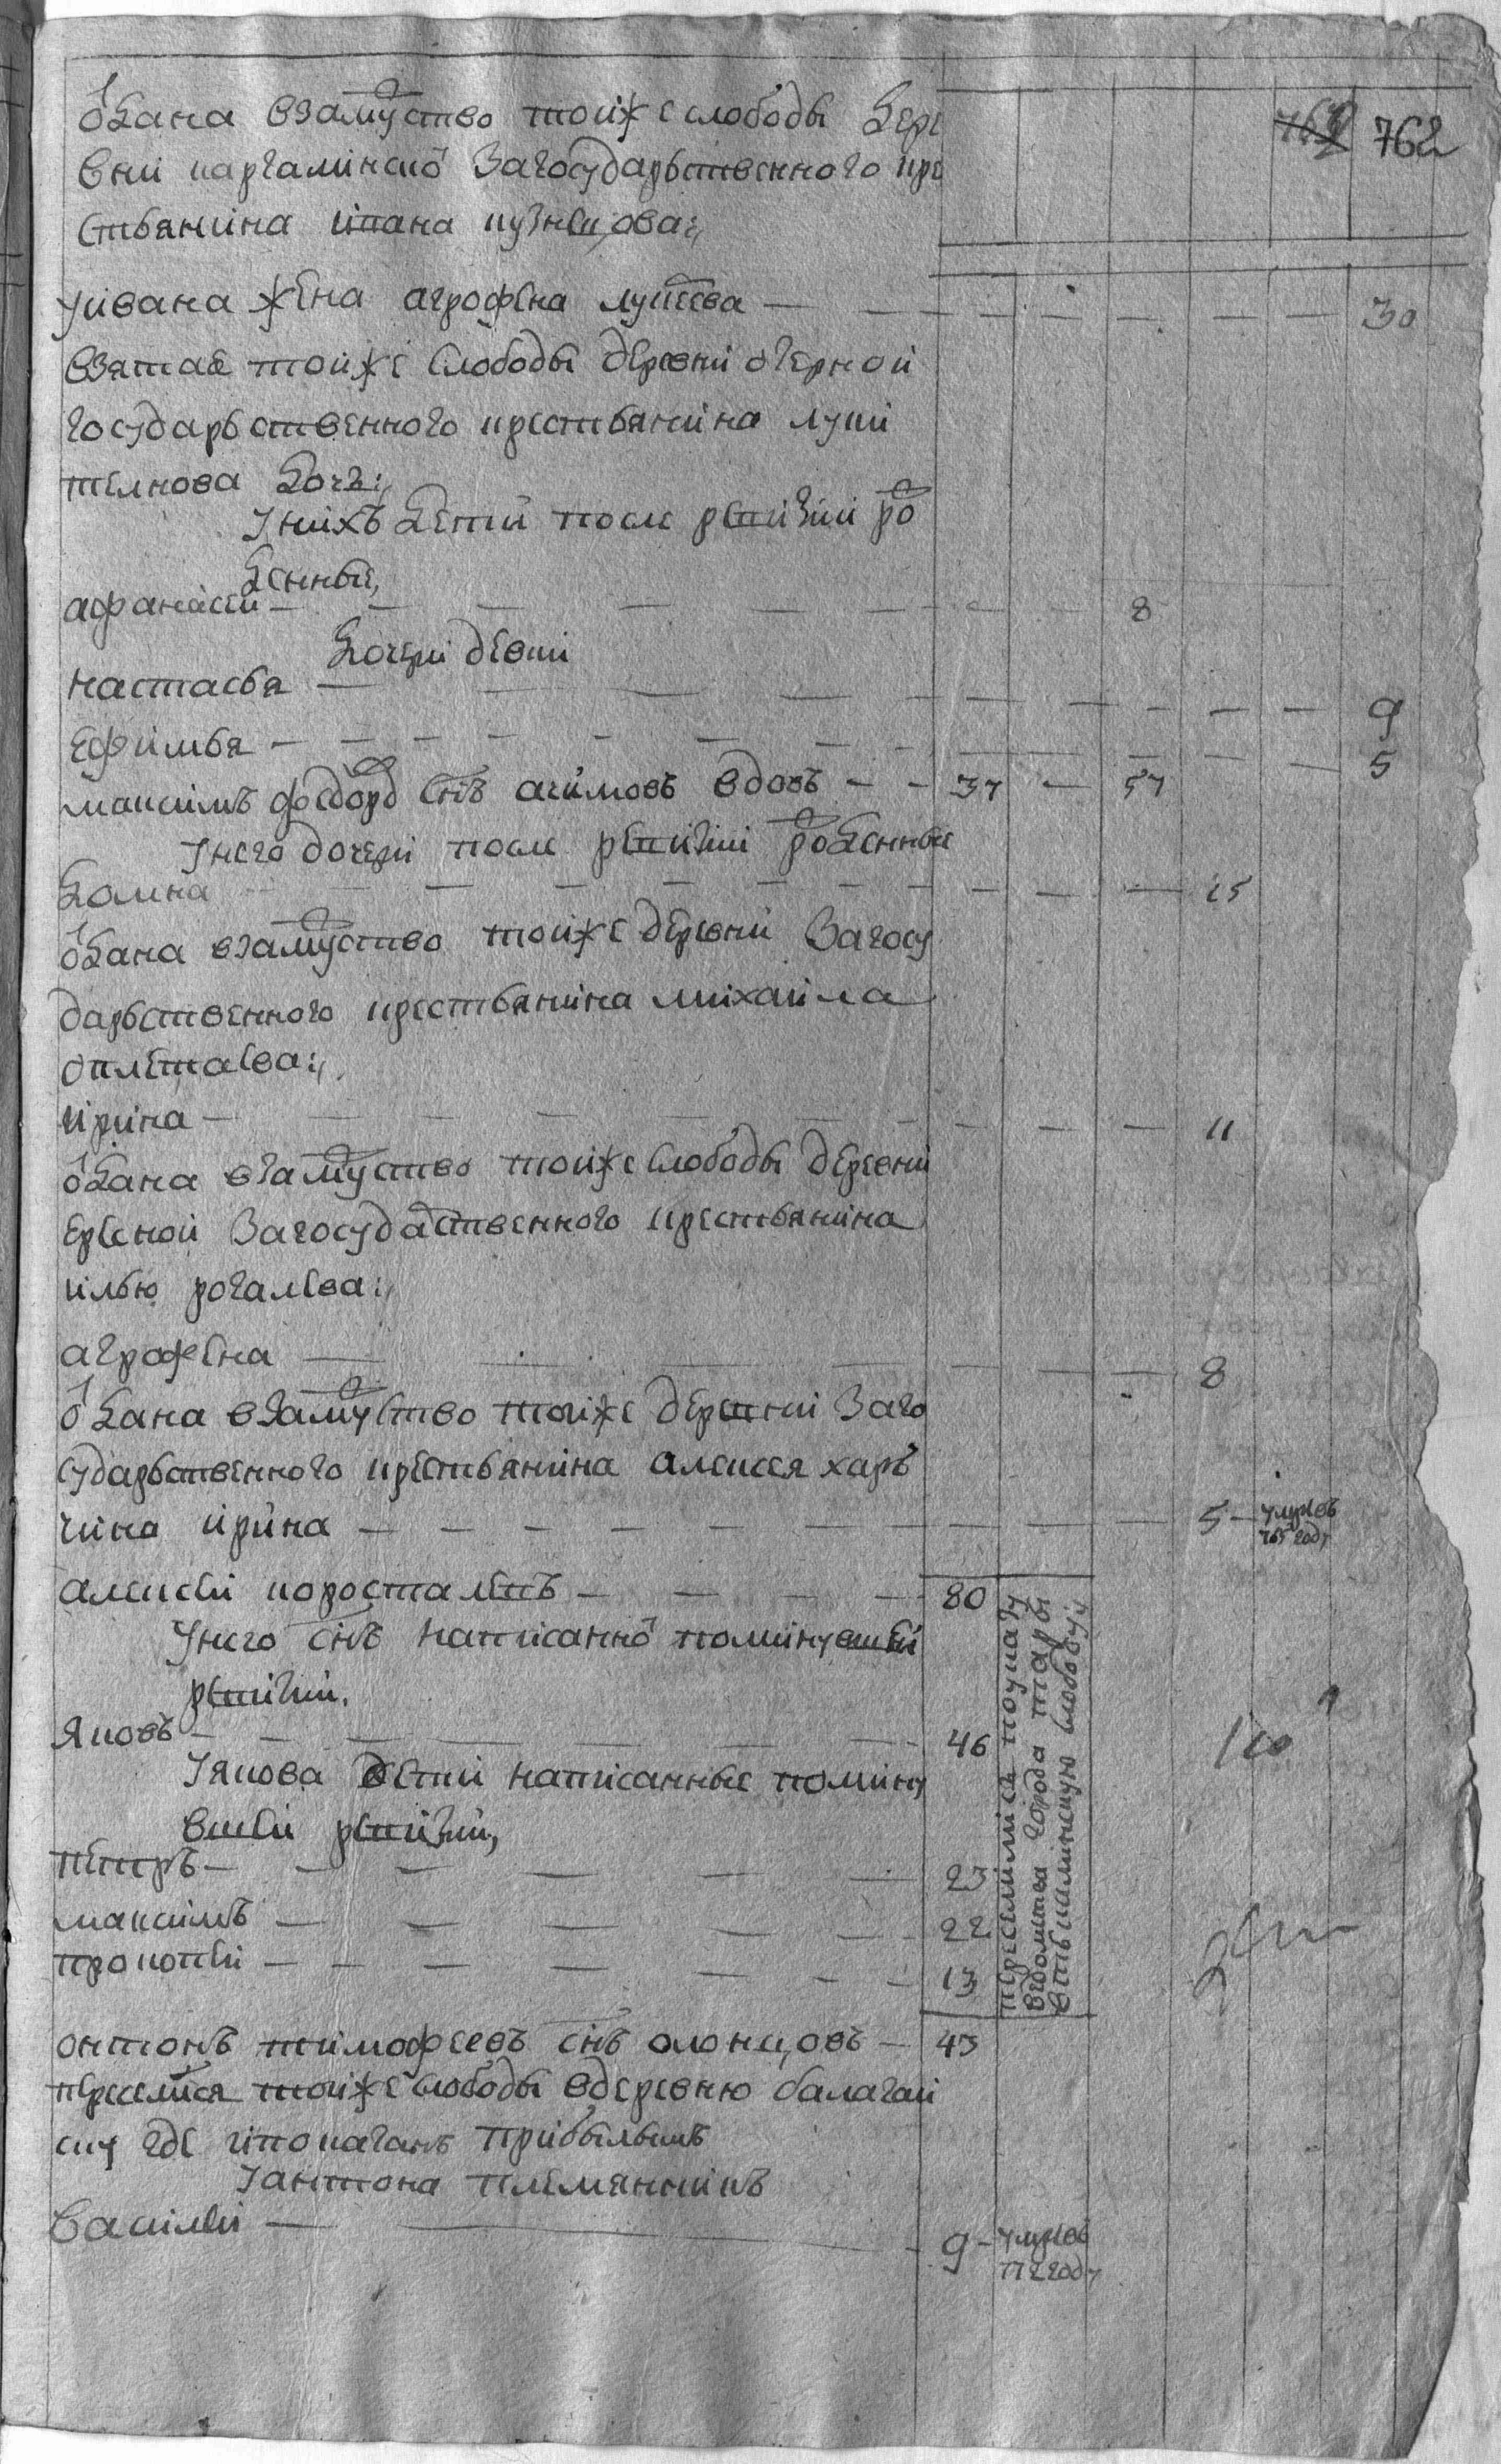 762 762
о̾дана взамуство тойже слободы дере
вни каргалинско̾ загосударьственного кре
стьянина ивана кузнецова:,
уивана жена агрофена лукеева — 30
взятае тойже слободы деревни
государьственного крестьянина луки
дочь:,
уних̾ъ детей после ревизии ро
денные,
афанасеи — 8
дочери девки
настасья — 9
ефимья — 5
максимъ федоровъ снъ акимовъ вдовъ — 37 — 57
унего дочери после ревизии роденные
домна — 15
о̾дана взамуство тойже деревни загосу
дарьственного крестьянина михаила
оплеталва:,
ирина — 11
о̾дана взамуство тойже слободы деревни
загосудаственного крестьянина
илью рогалева:,
агрофена — 8
о̾дана взамуство тойже деревни заго
сударьственного крестьянина алексея харь
чина ирина — 5 — умре въ
765 году
алексеи коросталевъ — 80
унего снъ написанно̾ поминувшеи
ревизии.
яковъ — 46
уякова детеи написанные помину
вшеи ревизии,
петръ — 23
максимъ — 22
прокопеи — 13
переселились поуказу
ведомства города тары
слободу
онтонъ тимофеевъ снъ олонцовъ — 43
переселися тойже слободы вдеревню балаган
ску где ипоказанъ прибылымъ
уантона племянникъ
василеи — 9 — умре въ
772 году